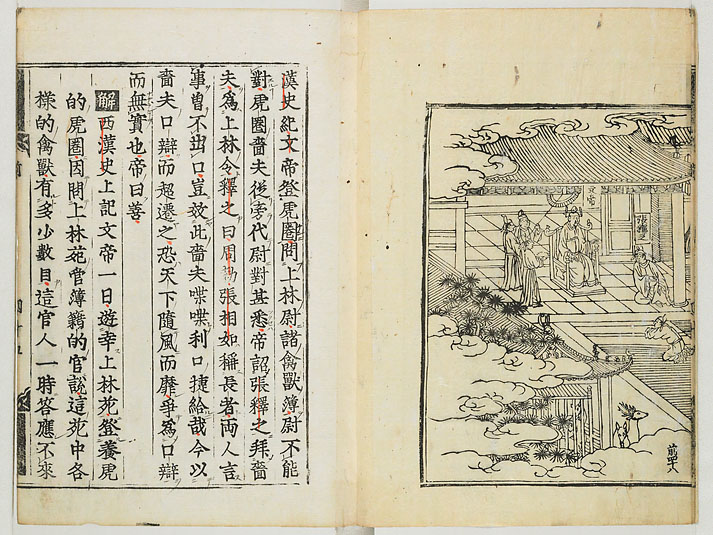 文帝
張釋之
前四十八
漢史紀文帝登虎圈問上林尉諸禽獸簿尉不能
對虎圈嗇夫從旁代尉對甚悉帝詔張釋之拜嗇
夫為上林令釋之曰周勃張相如稱長者兩人言
事曾不出口豈效此嗇夫喋喋利口捷給哉今以
嗇夫口辯而超遷之恐天下隨風而靡爭為口辯
而無實也帝曰善
解西漢史上記文帝一日遊幸上林苑登養虎
的虎圈因問上林苑管簿籍的官說這苑中各
樣的禽獸有多少數目這官人一時答應不來